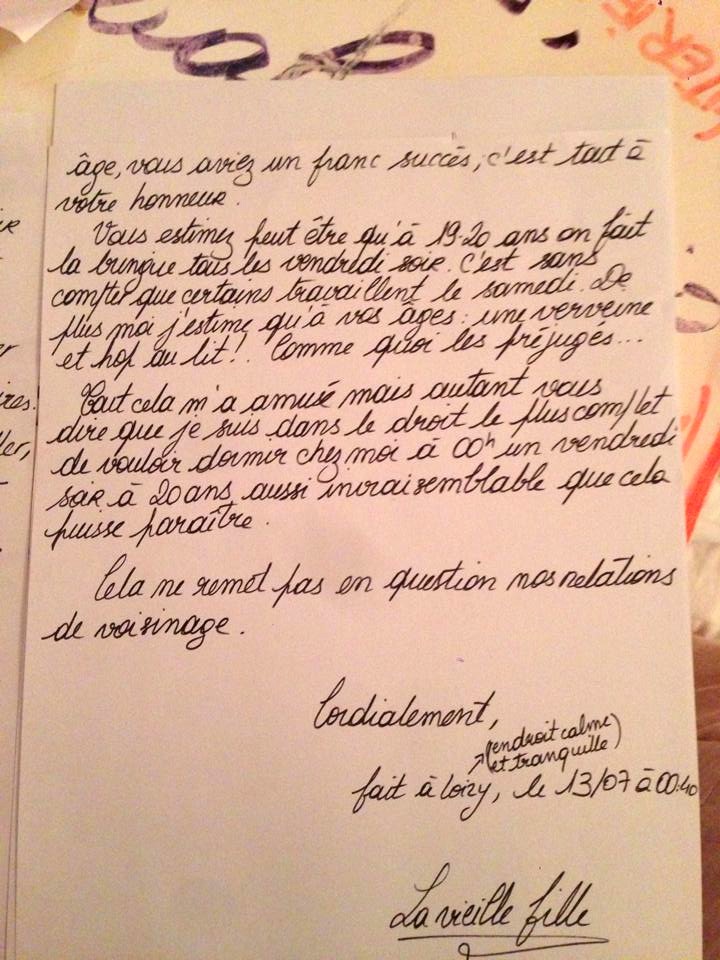 TERIE
âge, vous aviez un franc succès, c'est tout à
votre honneur.
Vous estimez peut être qu'à 19-20 ans on fait
la bringue tous les vendredi soir. C'est sans
compter que certains travaillent le samedi. De
plus moi j'estime qu'à vos âges : une verveine
et hop au lit!. Comme quoi les préjugés...
Tout cela m'a amusé mais autant vous
dire que je suis dans le droit le plus complet
de vouloir dormir chez moi à 00h un vendredi
soir à 20 ans, aussi invraisemblable que cela
puisse paraître.
Cela ne remet pas en question nos relations
de voisinage.
Cordialement,
(endroit calme
et tranquille)
fait à Loizy, le 13/07 à 00:40
La vieille fille